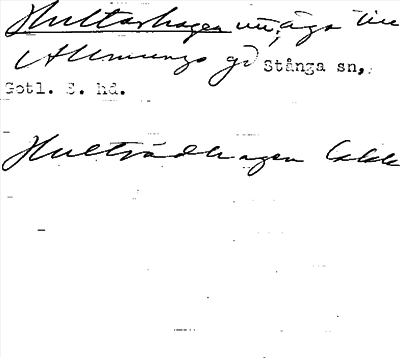 Hultarhagen utäga till
Allmungs gd Stånga sn,
Gotl. S. hd.
Hulträdhagen